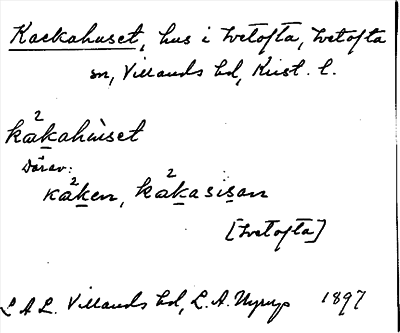 Kackahuset, hus i Ivetofta, Ivetofta
sn, Villands hd, Krist. l.
ka²kahùset
Därav:
ka²ken, ka²kasisan
[Ivetofta]
L A L. Villands hd, L. A. Nyrup 1897